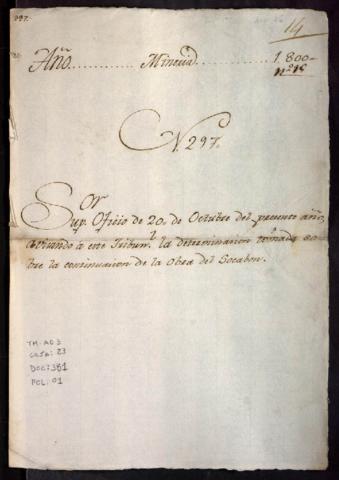 297.
14
Año........ Mineria........ 1.800
nº 15
N. 297.
Sup.or Oficio de 20. de Octubre del presente año,
avisando à este Tribun.l la determinacion tomada so-
bre la continuacion de la Obra del Socabon.
TM-AD3
CAJA: 23
DOC: 381
FOL: 01